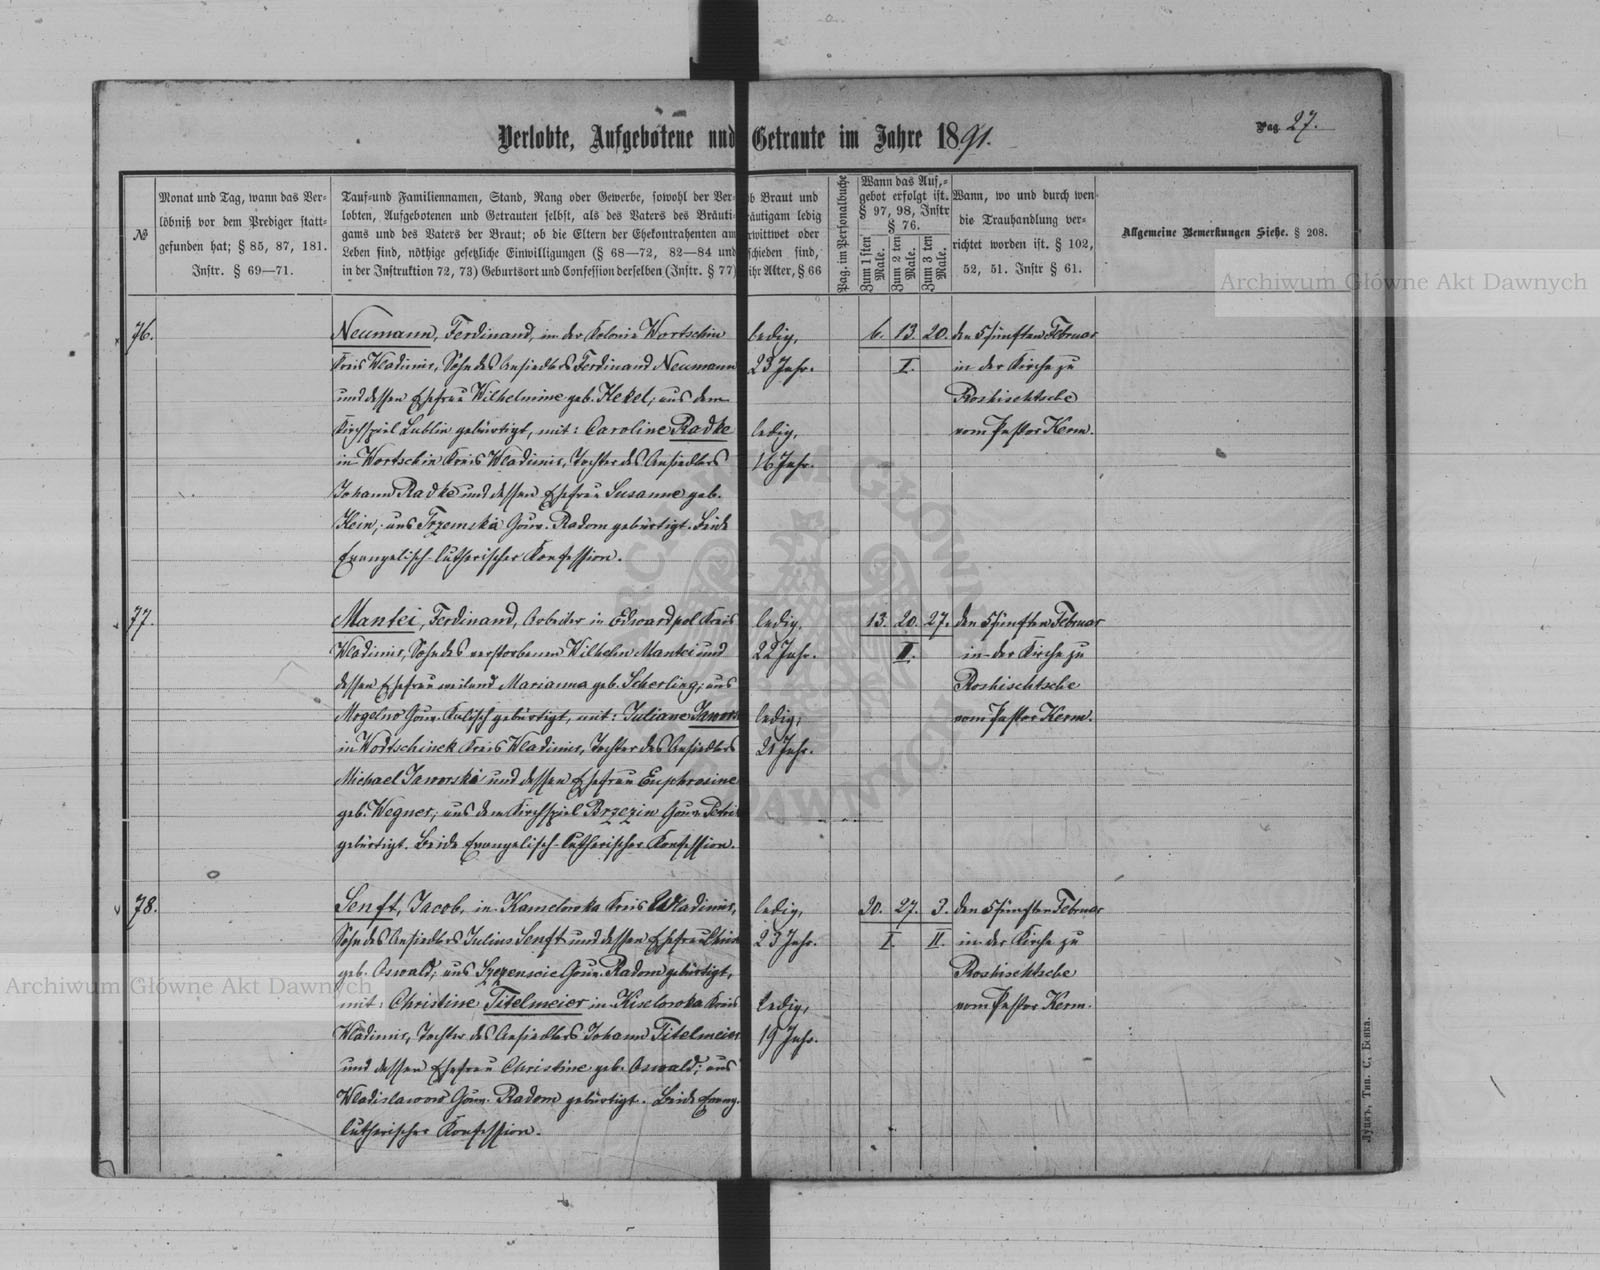 Verlobte, Aufgebotene und Getraute im Jahre 1891.
Pag. 27.
№
Monat und Tag, wann das Ver-
löbniß vor dem Prediger statt-
gefunden hat; § 85, 87, 181.
Instr. § 69—71.
Tauf=und Familiennamen, Stand, Rang oder Gewerbe, sowohl der Ver-
lobten, Aufgebotenen und Getrauten selbst, als des Vaters des Bräuti-
gams und des Vaters der Braut; ob die Eltern der Ehekontrahenten am
Leben sind, nöthige gesetzliche Einwilligungen (§ 68—72, 82—84 und
in der Instruktion 72, 73) Geburtsort und Confession derselben (Instr. § 77)
b Braut und
äutigam ledig
rwittwet oder
schieden sind,
ihr Alter, § 66
Pag. im Personalbuche
Wann das Auf,=
gebot erfolgt ist.
§ 97, 98, Instr
§ 76.
Zum 1 sten Male.
Zum 2 ten Male.
Zum 3 ten Male.
Wann, wo und durch wen
die Trauhandlung ver-
richtet worden ist. § 102,
52, 51. Instr § 61.
Allgemeine Bemerkungen Siehe. § 208.
76.
Neumann, Ferdinand, in der Kolonie Wortschin
Kreis Wladimir, Sohn des Ansiedlers Ferdinand Neumann
und dessen Ehefrau Wilhelmine geb. Hekel; aus dem
Kirchspiel Lublin gebürtigt, mit: Caroline Radke
in Wortschin Kreis Wladimir, Tochter des Ansiedlers
Johann Radke und dessen Ehefrau Susanne geb.
Hein; aus Trzemska Gouv. Radom gebürtigt. Beide
Evangelisch-lutherischer Konfession.
ledig,
23 Jahr.
ledig,
16 Jahr.
6. 13. 20.
I.
den 5 fünften Februar
in der Kirche zu
Roshischtsche
vom Pastor Kerm.
77.
Mantei, Ferdinand, Arbeiter in Edwardpol Kreis
Wladimir, Sohn des verstorbenen Wilhelm Mantei und
dessen Ehefrau weiland Marianna geb. Scherling; aus
Mogelno Gouv. Kalisch gebürtigt, mit: Juliane Jawors
in Wortschinek Kreis Wladimir, Tochter des Ansiedlers
Michael Jaworski und dessen Ehefrau Euphrosine
geb. Wegner; aus dem Kirchspiel Brzezin Gouv. Petri
gebürtigt. Beide Evangelisch-lutherischer Konfession.
ledig,
22 Jahr.
ledig,
21 Jahr.
13. 20. 27.
II.
den 5 fünften Februar
in der Kirche zu
Roshischtsche
vom Pastor Kerm.
78.
Senft, Jacob, in Kamelowka Kreis Wladimir,
Sohn des Ansiedlers Julius Senft und dessen Ehefrau
geb. Oswald; aus Gouv. Radom gebürtigt,
mit: Christine Titelmeier in Kiselowka Kreis
Wladimir, Tochter des Ansiedlers Johann Titelmeier
und dessen Ehefrau Christine geb. Oswald; aus
Wladislawow Gouv. Radom gebürtigt. Beide Evang.
lutherischer Konfession.
ledig,
23 Jahr.
ledig,
19 Jahr.
20. 27. 3.
I. II.
den 5 fünften Februar
in der Kirche zu
Roshischtsche
vom Pastor Kerm.
Луцкъ, Тип. С. Бонка.
Archiwum Główne Akt Dawnych
Archiwum Główne Akt Dawnych
ARCHIWUM GŁÓWNE AKT DAWNYCH